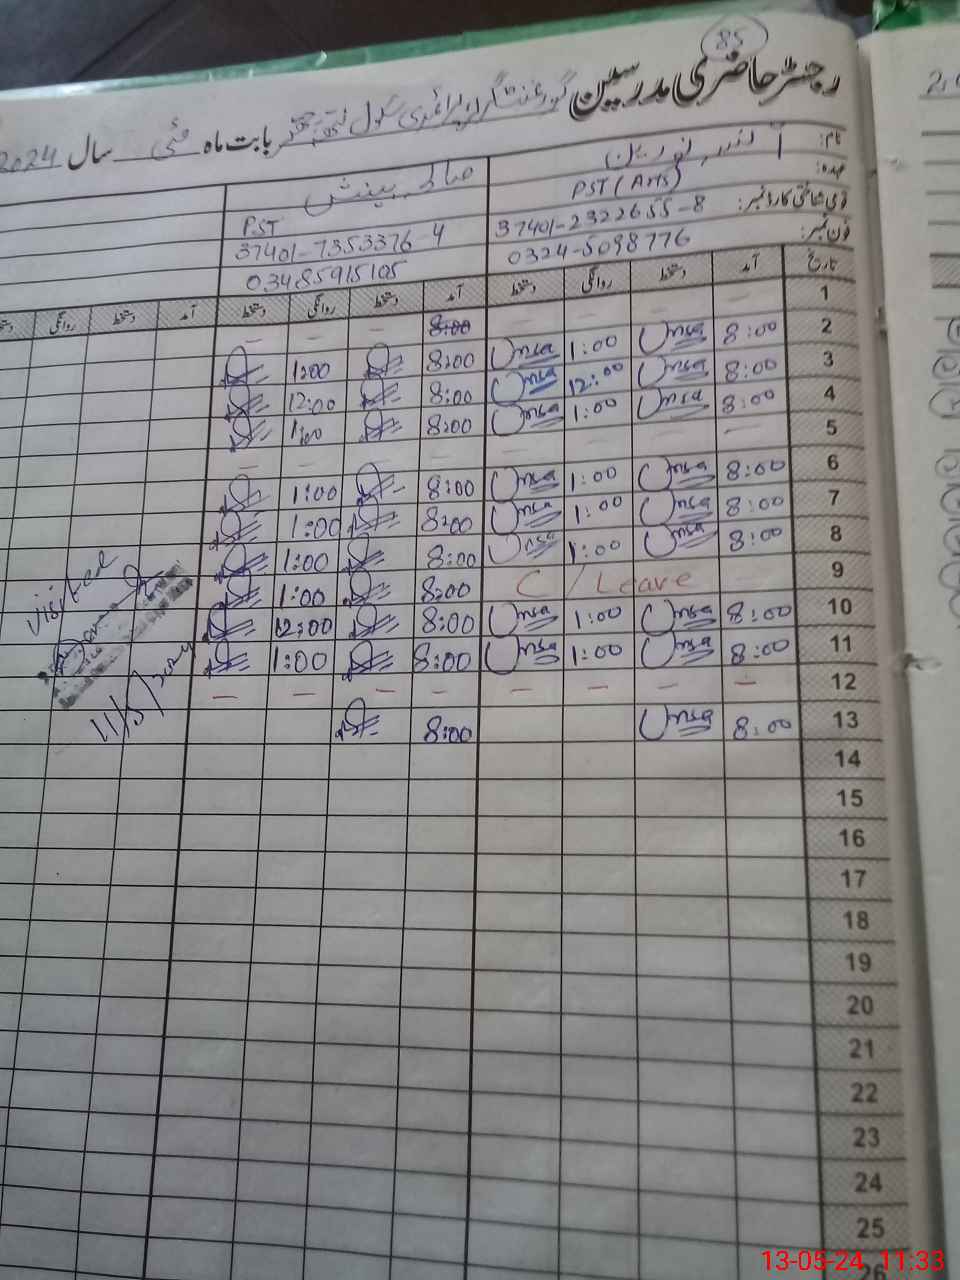 85
رجسٹر حاضری مدرسین گورنمنٹ گرلز پرائمری سکول بابت ماہ مئی سال 2024
نام:
عہدہ: PST (AHS) PST
قومی شناختی کارڈ نمبر: 37401-2322655-8 37401-7353376-4
فون نمبر: 0324-5098776 03485915105
تاریخ آمد دستخط روانگی دستخط آمد دستخط روانگی دستخط آمد دستخط روانگی
1 — — — — 8:00 — — —
2 8:00 Unsa 1:00 Unsa 8:00 1:00
3 8:00 Unsa 12:00 Unsa 8:00 12:00
4 8:00 Unsa 1:00 Unsa 8:00 1:00
5 — — — — — — — —
6 8:00 Unsa 1:00 Unsa 8:00 1:00
7 8:00 Unsa 1:00 Unsa 8:00 1:00
8 8:00 Unsa 1:00 Unsa 8:00 1:00
9 C/Leave 8:00 1:00
10 8:00 Unsa 1:00 Unsa 8:00 12:00
11 8:00 Unsa 1:00 Unsa 8:00 1:00
12 — — — — — — — —
13 8:00 Unsa 8:00
14
15
16
17
18
19
20
21
22
23
24
25
26
visited
11/5/2024
13-05-24, 11:33